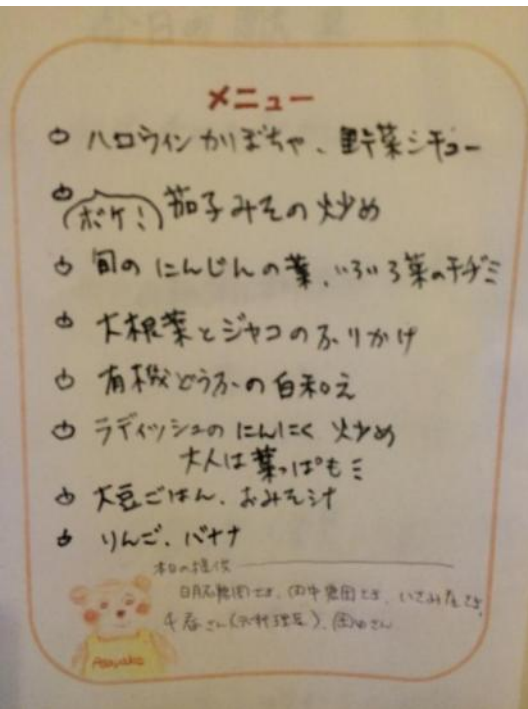 メニュー
ハロウィンかぼちゃ、野菜シチュー
(ボケミ) 茄子みその炒め
旬のにんじんの葉、いろいろ菜のチヂミ
大根葉とジャコのふりかけ
有機どうふの白和え
ラディッシュのにんにく炒め
大人は葉っぱもミ
大豆ごはん、おみそ汁
りんご、バナナ
本日の提供
田中農園さま、いさみ
千春さん